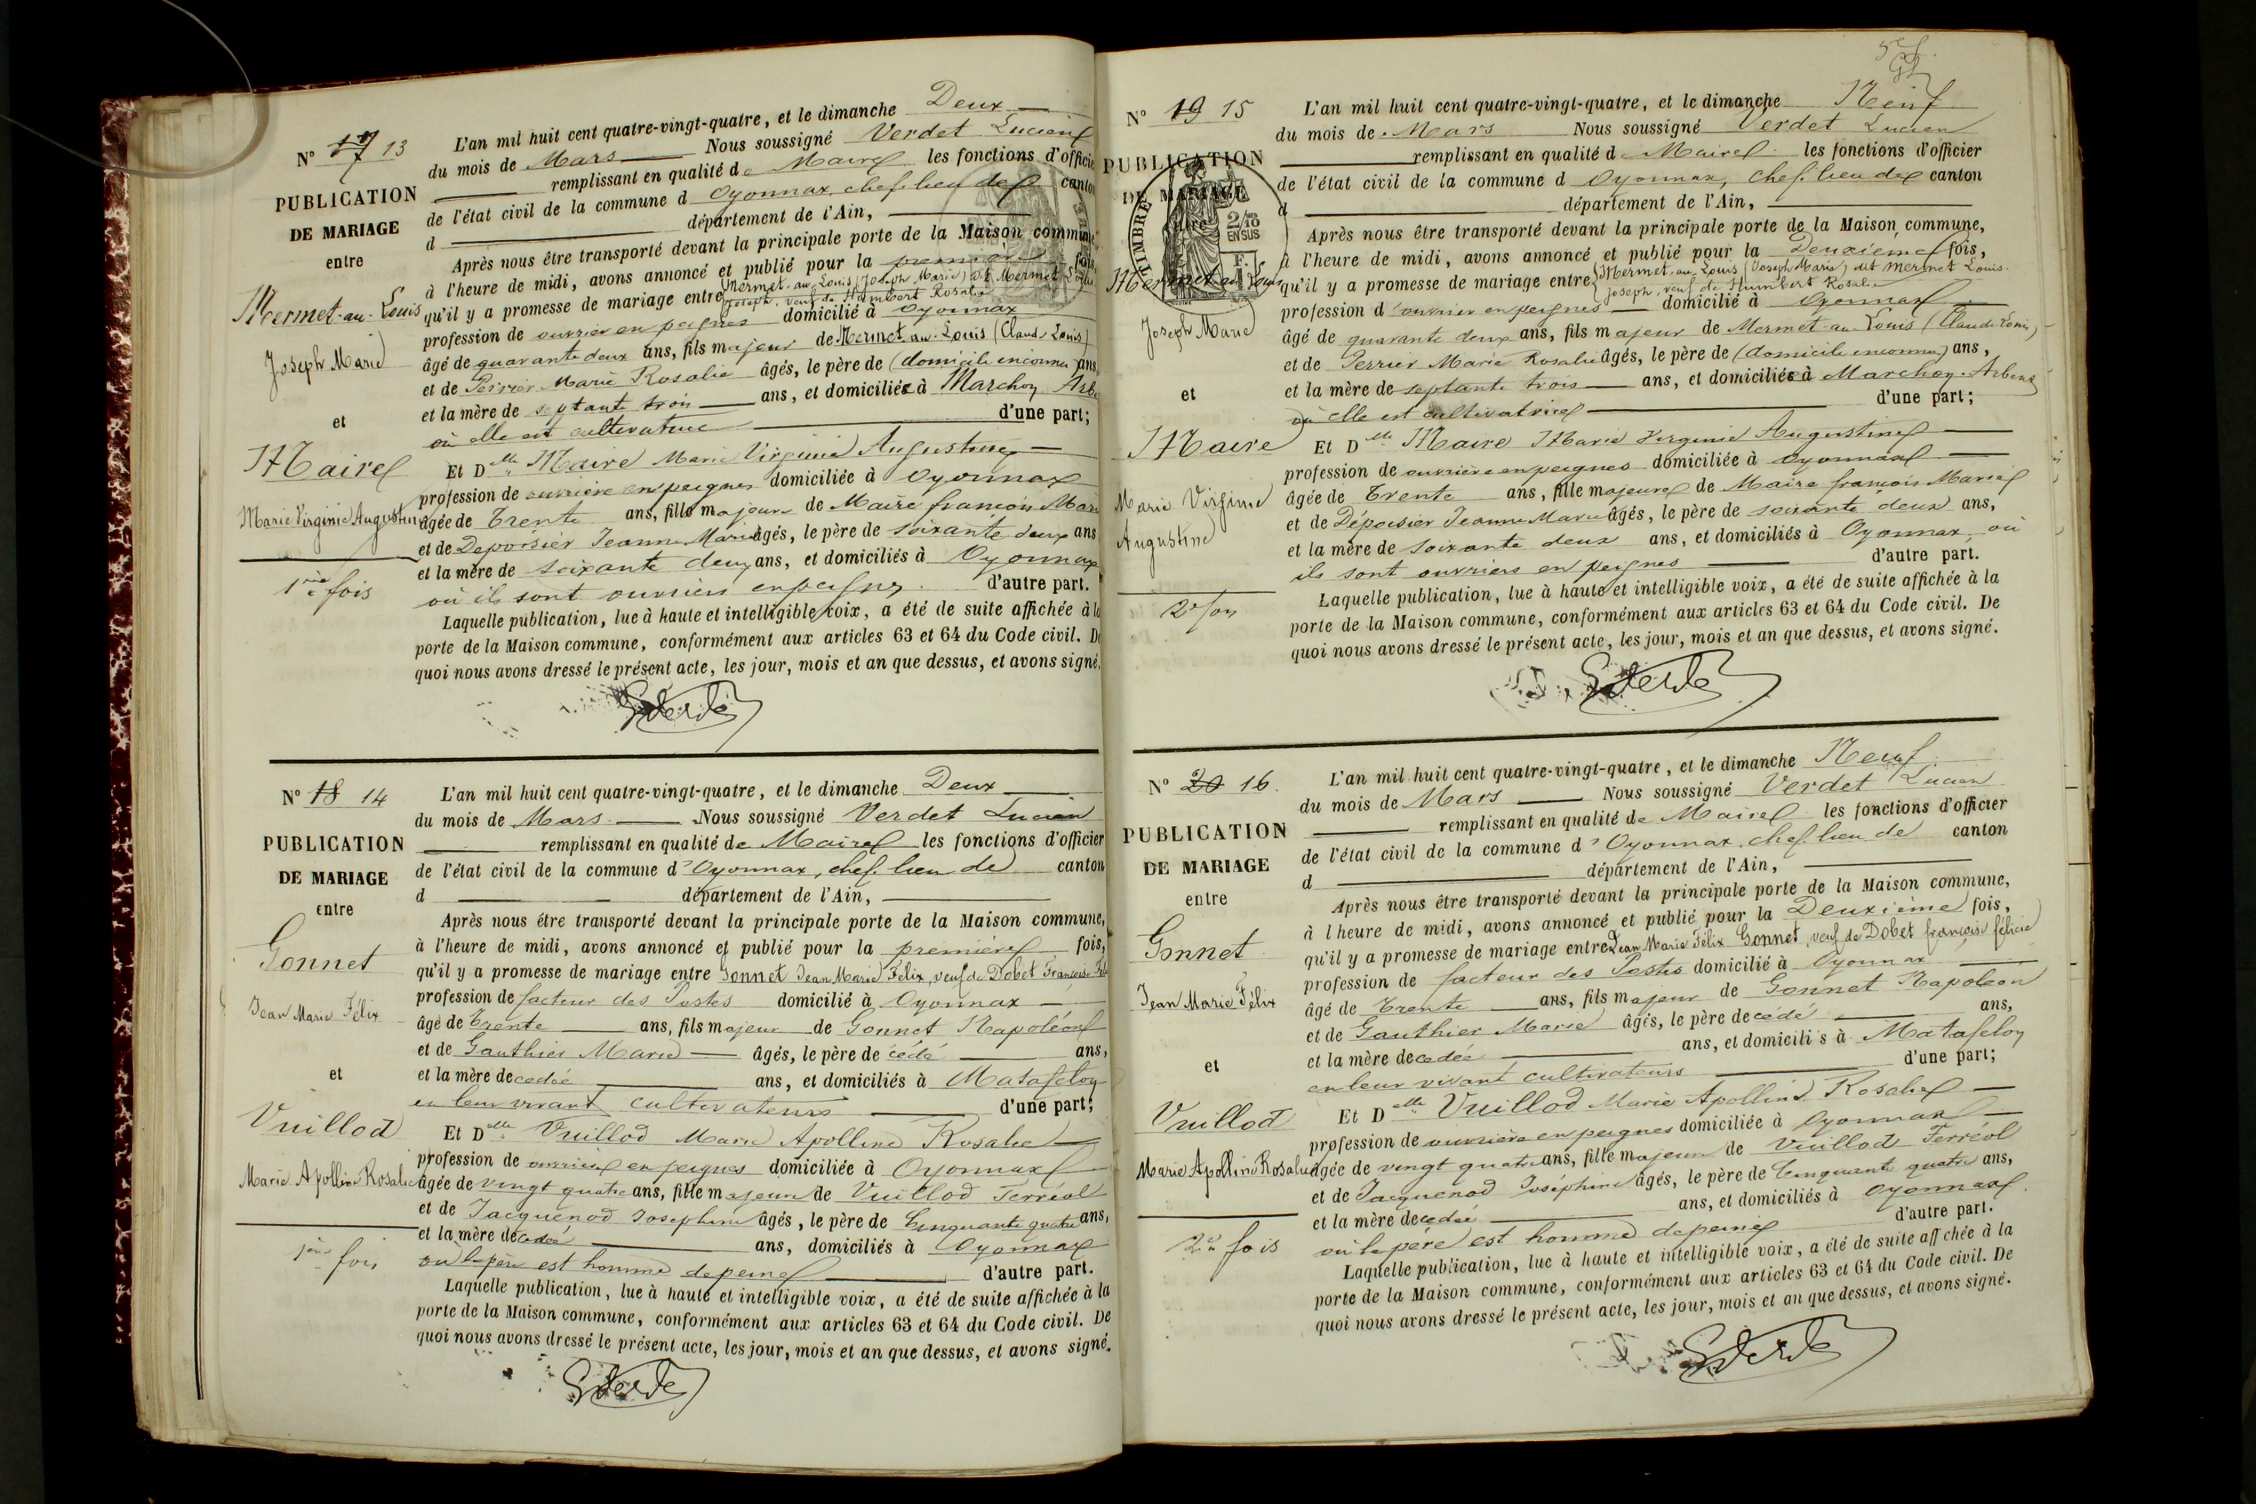 N° 17 13
PUBLICATION
DE MARIAGE
entre
Mermet-au-Louis
Joseph Marie
et
Maire
Marie Virginie Augustine
1re fois
L'an mil huit cent quatre-vingt-quatre, et le dimanche Deux
du mois de Mars Nous soussigné Verdet Lucien
remplissant en qualité de Maire les fonctions d'officie
de l'état civil de la commune d Oyonnax, chef-lieu de canton
d département de l'Ain,
Après nous être transporté devant la principale porte de la Maison commune,
à l'heure de midi, avons annoncé et publié pour la première fois,
qu'il y a promesse de mariage entre Mermet-au-Louis (Joseph Marie) dit Mermet Louis
Joseph, veuf de Humbert Rosalie
profession de ouvrier en peignes domicilié à Oyonnax
âgé de quarante deux ans, fils majeur de Mermet-au-Louis (Claude Louis)
et de Perrier Marie Rosalie âgés, le père de (domicile inconnu) ans,
et la mère de septante trois ans, et domiciliée à Marchon Arbe
où elle est cultivatrice d'une part;
Et Delle Maire Marie Virginie Augustine
profession de ouvrière en peignes domiciliée à Oyonnax
âgée de Trente ans, fille majeure de Maire françois Mari
et de Depoisier Jeanne Marie âgés, le père de soixante deux ans
et la mère de soixante deux ans, et domiciliés à Oyonnax
où ils sont ouvriers en peignes d'autre part.
Laquelle publication, lue à haute et intelligible voix, a été de suite affichée à la
porte de la Maison commune, conformément aux articles 63 et 64 du Code civil. De
quoi nous avons dressé le présent acte, les jour, mois et an que dessus, et avons signé.
N° 18 14
PUBLICATION
DE MARIAGE
entre
Gonnet
Jean Marie Félix
et
Vuillod
Marie Apolline Rosalie
1ère fois
L'an mil huit cent quatre-vingt-quatre, et le dimanche Deux
du mois de Mars Nous soussigné Verdet Lucien
remplissant en qualité de Maire les fonctions d'officier
de l'état civil de la commune d'Oyonnax, chef-lieu de canton
d département de l'Ain,
Après nous être transporté devant la principale porte de la Maison commune,
à l'heure de midi, avons annoncé et publié pour la première fois,
qu'il y a promesse de mariage entre Gonnet Jean Marie Félix, veuf de Dobet Françoise Féli
profession de facteur des Postes domicilié à Oyonnax
âgé de Trente ans, fils majeur de Gonnet Napoléon
et de Gauthier Marie âgés, le père décédé ans,
et la mère decedée ans, et domiciliés à Matafelon
en leur vivant cultivateurs d'une part;
Et Delle Vuillod Marie Apolline Rosalie
profession de ouvrière en peignes domiciliée à Oyonnax
âgée de vingt quatre ans, fille majeure de Vuillod Ferréol
et de Jacquenod Joséphine âgés, le père de Cinquante quatre ans,
et la mère décedée ans, domiciliés à Oyonnax
où le père est homme de peine d'autre part.
Laquelle publication, lue à haute et intelligible voix, a été de suite affichée à la
porte de la Maison commune, conformément aux articles 63 et 64 du Code civil. De
quoi nous avons dressé le présent acte, les jour, mois et an que dessus, et avons signé.
N° 19 15
PUBLICATION
DE MARIAGE
entre
TIMBRE
2/10
EN SUS
Mermet-au-Louis
Joseph Marie
et
Maire
Marie Virginie
Augustine
2e fois
L'an mil huit cent quatre-vingt-quatre, et le dimanche Neuf
du mois de Mars Nous soussigné Verdet Lucien
remplissant en qualité de Maire les fonctions d'officier
de l'état civil de la commune d Oyonnax, chef-lieu de canton
d département de l'Ain,
Après nous être transporté devant la principale porte de la Maison commune,
à l'heure de midi, avons annoncé et publié pour la Deuxième fois,
qu'il y a promesse de mariage entre Mermet-au-Louis (Joseph Marie) dit Mermet Louis
Joseph, veuf de Humbert Rosalie
profession d'ouvrier en peignes domicilié à Oyonnax
âgé de quarante deux ans, fils majeur de Mermet-au-Louis (Claude Louis)
et de Perrier Marie Rosalie âgés, le père de (domicile inconnu) ans,
et la mère de septante trois ans, et domiciliée à Marchon-Arbent
où elle est cultivatrice d'une part;
Et Delle Maire Marie Virginie Augustine
profession de ouvrière en peignes domiciliée à Oyonnax
âgée de Trente ans, fille majeure de Maire françois Marie
et de Dépoisier Jeanne Marie âgés, le père de soixante deux ans,
et la mère de soixante deux ans, et domiciliés à Oyonnax, où
ils sont ouvriers en peignes d'autre part.
Laquelle publication, lue à haute et intelligible voix, a été de suite affichée à la
porte de la Maison commune, conformément aux articles 63 et 64 du Code civil. De
quoi nous avons dressé le présent acte, les jour, mois et an que dessus, et avons signé.
N° 20 16
PUBLICATION
DE MARIAGE
entre
Gonnet
Jean Marie Félix
et
Vuillod
Marie Apolline Rosalie
2e fois
L'an mil huit cent quatre-vingt-quatre, et le dimanche Neuf
du mois de Mars Nous soussigné Verdet Lucien
remplissant en qualité de Maire les fonctions d'officier
de l'état civil de la commune d'Oyonnax, chef-lieu de canton
d département de l'Ain,
Après nous être transporté devant la principale porte de la Maison commune,
à l'heure de midi, avons annoncé et publié pour la Deuxième fois,
qu'il y a promesse de mariage entre Jean Marie Félix Gonnet, veuf de Dobet françoise félicie
profession de facteur des Postes domicilié à Oyonnax
âgé de Trente ans, fils majeur de Gonnet Napoléon
et de Gauthier Marie âgés, le père décédé ans,
et la mère decedée ans, et domiciliés à Matafelon
en leur vivant cultivateurs d'une part;
Et Delle Vuillod Marie Apolline Rosalie
profession de ouvrière en peignes domiciliée à Oyonnax
âgée de vingt quatre ans, fille majeure de Vuillod Ferréol
et de Jacquenod Joséphine âgés, le père de Cinquante quatre ans,
et la mère decedée ans, et domiciliés à Oyonnax
où le père est homme de peine d'autre part.
Laquelle publication, lue à haute et intelligible voix, a été de suite affichée à la
porte de la Maison commune, conformément aux articles 63 et 64 du Code civil. De
quoi nous avons dressé le présent acte, les jour, mois et an que dessus, et avons signé.